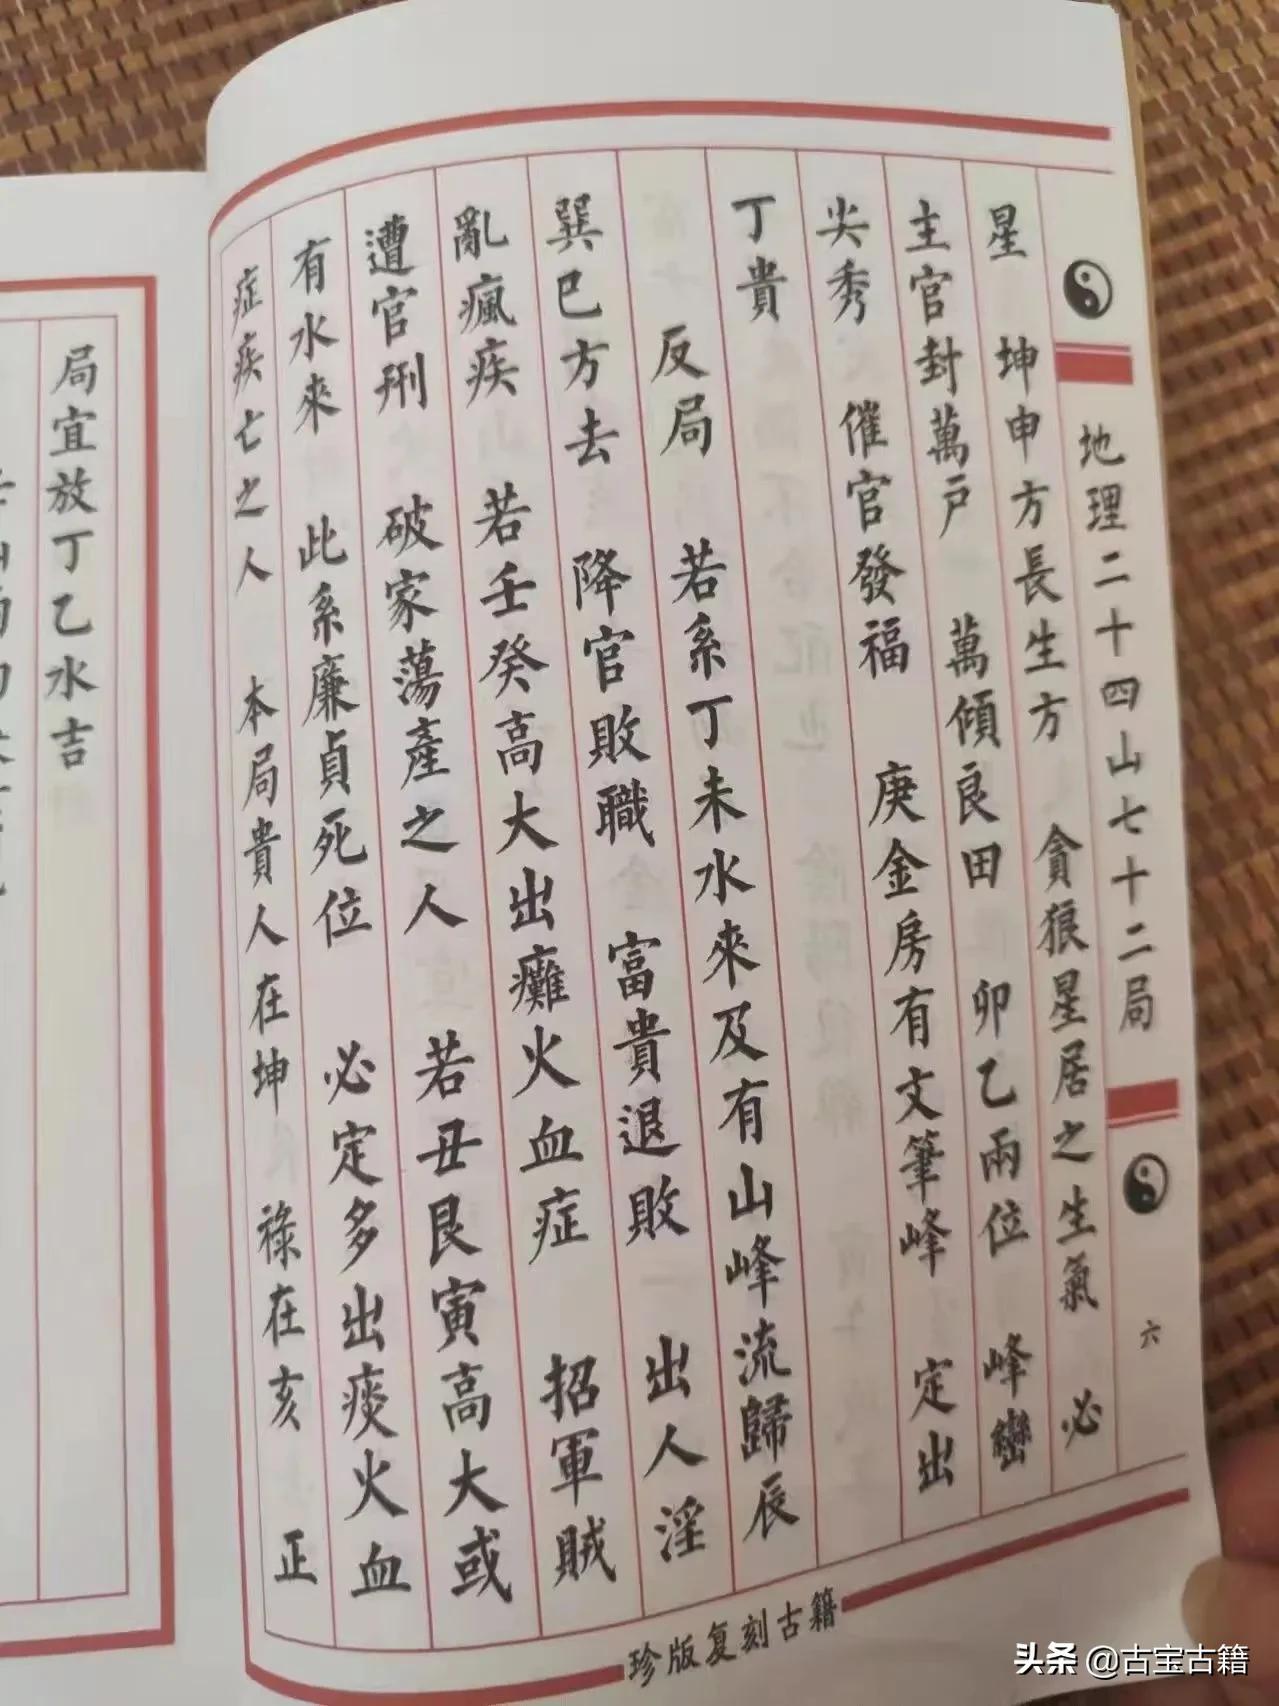 地理二十四山七十二局
六
星 坤申方長生方 貪狼星居之生氣 必
主官封萬戶 萬傾良田 卯乙兩位 峰巒
尖秀 催官發福 庚金房有文筆峰 定出
丁貴
反局 若系丁未水來及有山峰流歸辰
巽巳方去 降官敗職 富貴退敗 出人淫
亂瘋疾 若壬癸高大出癱火血症 招軍賊
遭官刑 破家蕩產之人 若丑艮寅高大或
有水來 此系廉貞死位 必定多出痰火血
症疾亡之人 本局貴人在坤 祿在亥 正
珍版复刻古籍
局宜放丁乙水吉
头条 @古宝古籍